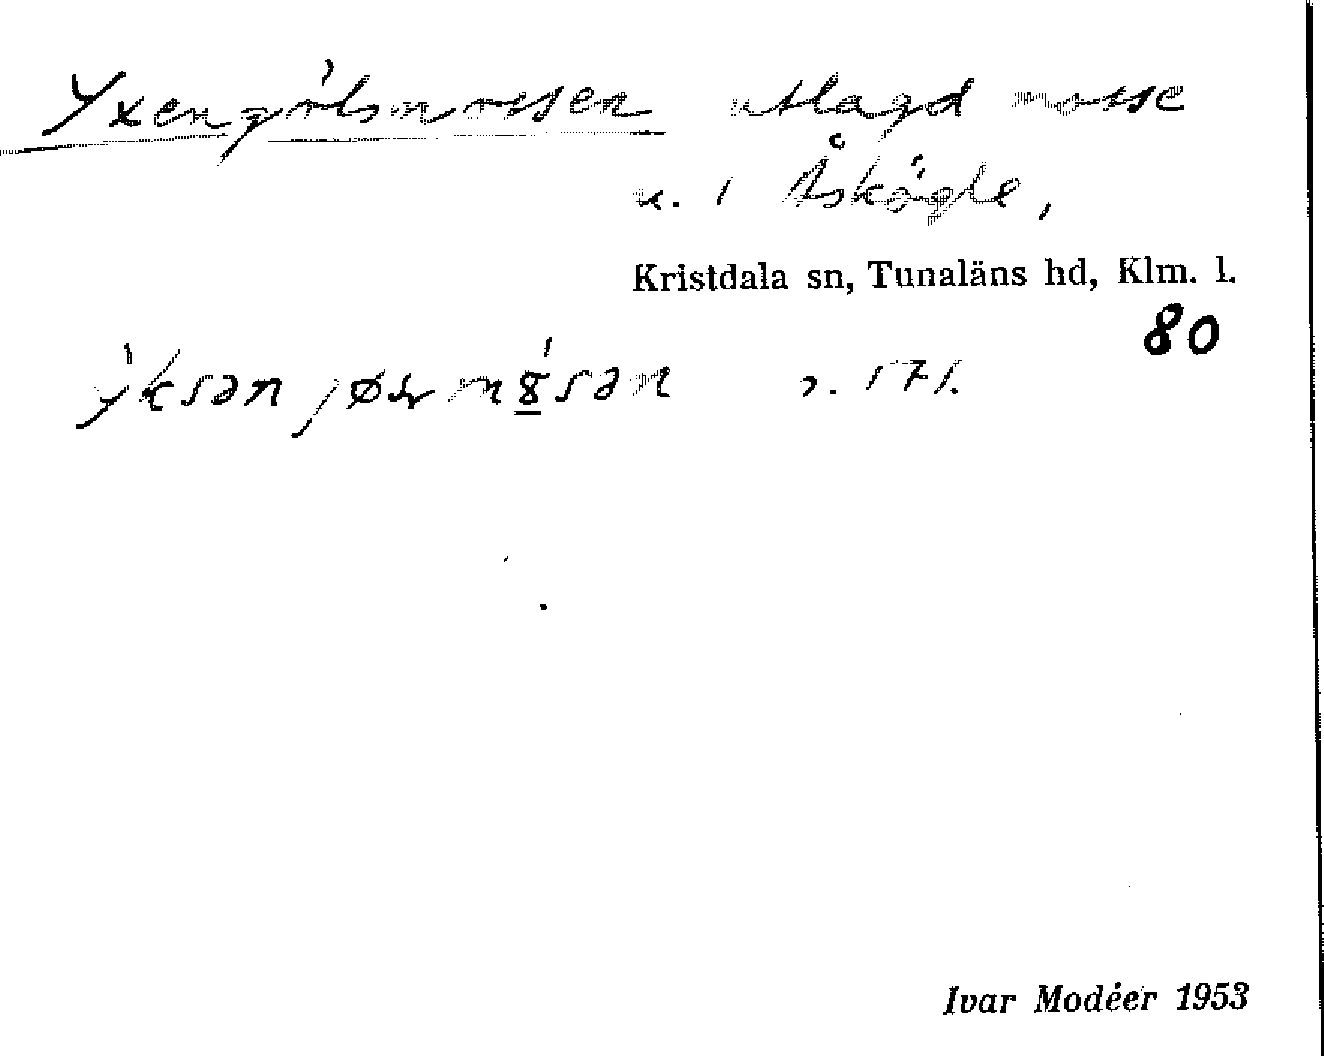 Yxengölsmossen utlagd mosse
n. i Åskögle,
Kristdala sn, Tunaläns hd, Klm. l.
80
s. 171.
Ivar Modéer 1953